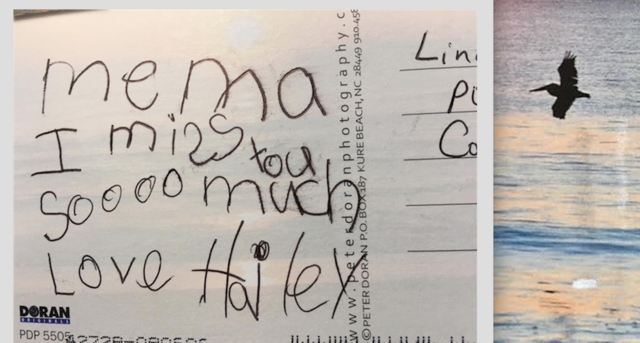 mema
I miss you
soooo much
Love Hailey
www.peterdoranphotography.c
© PETER DORAN P.O. BOX 187 KURE BEACH, NC 28449 910-458
Lin
Co
DORAN
PDP 5505